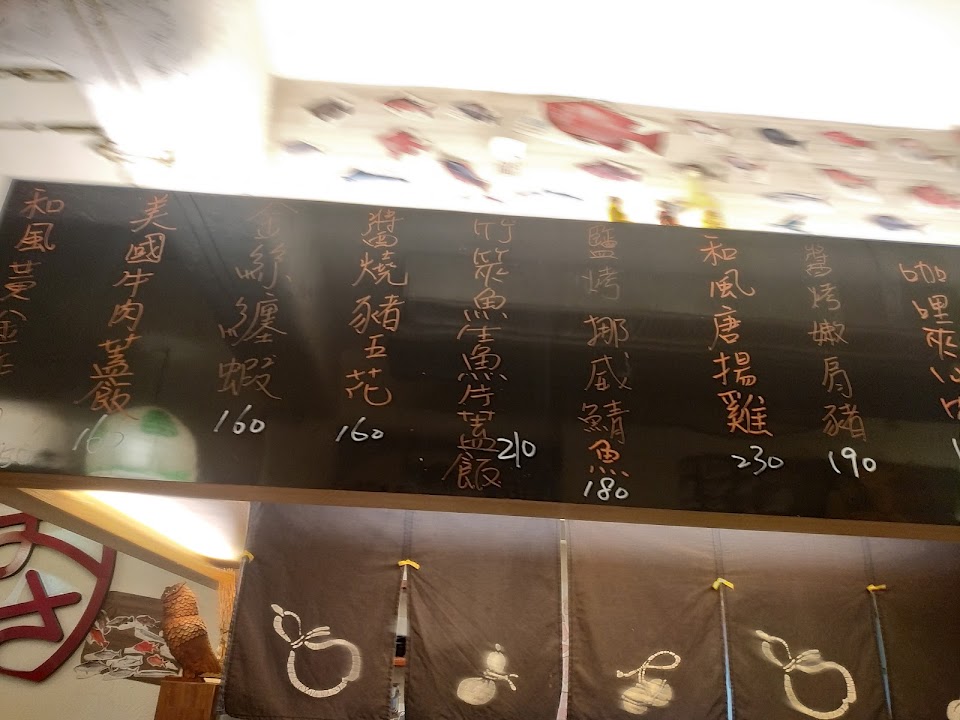 和風黃金
美國牛肉蓋飯
160
金絲纏蝦
160
醬燒豬五花
160
竹筴魚生魚片蓋飯
210
鹽烤挪威鯖魚
180
和風唐揚雞
230
醬烤嫩肩豬
190
咖哩夾心